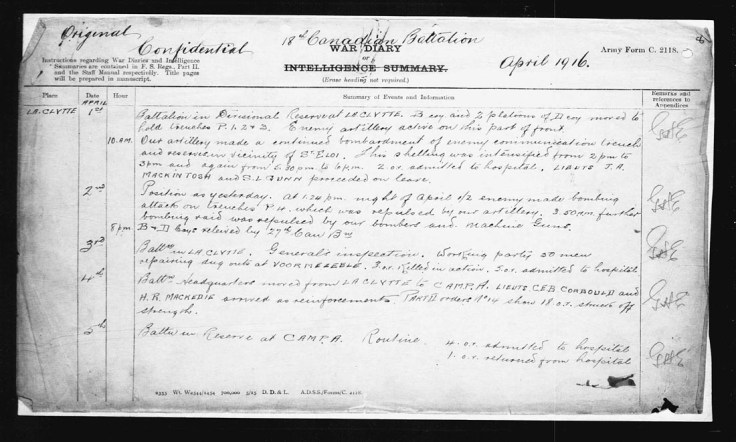 Original
Confidential
18th Canadian Battalion
WAR DIARY
or
INTELLIGENCE SUMMARY.
(Erase heading not required.)
Army Form C. 2118.
April 1916.
Instructions regarding War Diaries and Intelligence
Summaries are contained in F. S. Regs., Part II.
and the Staff Manual respectively. Title pages
will be prepared in manuscript.
Place
Date
Hour
Summary of Events and Information
Remarks and
references to
Appendices
LA CLYTTE
APRIL
1st
Battalion in Divisional Reserve at LA CLYTTE. B coy and 2 platoons of D coy moved to
hold trenches P. 1. 2 & 3. Enemy artillery active on this part of front.
10 A.M.
Our artillery made a continued bombardment of enemy communication trench
and reserves in vicinity of St ELOI. This shelling was intensified from 2 pm to
3 pm and again from to 6 pm. 2 o.r. admitted to hospital. LIEUTS T.A.
MACKINTOSH and S.L. GUNN proceeded on leave.
2nd
Position as yesterday. At pm. night of April 1/2 enemy made bombing
attack on trenches P.4. which was repulsed by our artillery. 3.50 A.M. further
bombing raid was repulsed by our bombers and Machine Guns.
8 pm
B & D Coys relieved by 27th Can Bn
3rd
Battn in LA CLYTTE. Generals inspection. Working party 50 men
repairing dug outs at VOORMEZEELE. 3 o.r. killed in action. 5 o.r. admitted to hospital
4th
Battn Headquarters moved from LA CLYTTE to CAMP. A. LIEUTS C.E.B CORBOULD and
H.R. MACKEDIE arrived as reinforcements. PART II orders No 14 show 18 o.r. struck off
strength.
5th
Battn in Reserve at CAMP. A. Routine. 4. o.r. admitted to hospital
1. o.r. returned from hospital
D. D. & L. A.D.S.S./Forms/C. 2118.